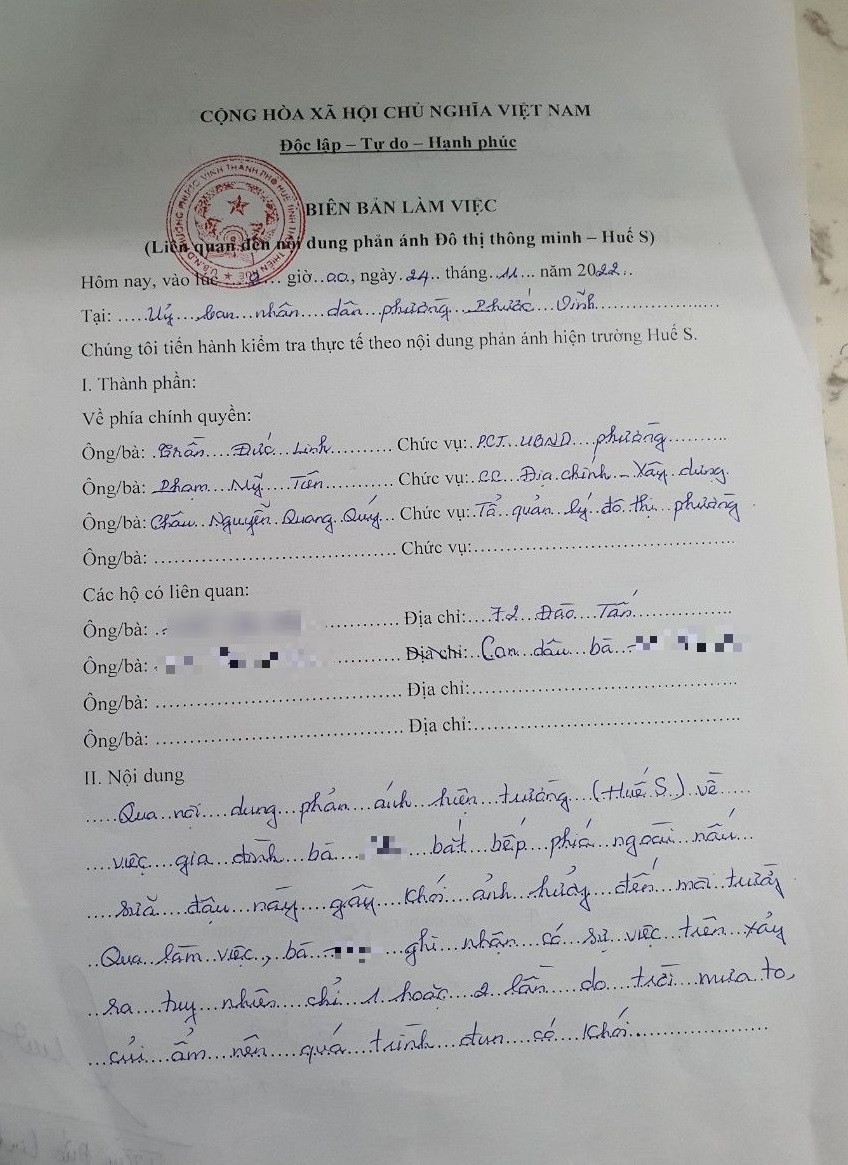 CỘNG HÒA XÃ HỘI CHỦ NGHĨA VIỆT NAM
Độc lập – Tự do – Hạnh phúc
BIÊN BẢN LÀM VIỆC
(Liên quan đến nội dung phản ánh Đô thị thông minh – Huế S)
Hôm nay, vào lúc ... giờ 00, ngày 24 tháng 11 năm 2022
Tại: Uỷ ban nhân dân phường Phước Vĩnh
Chúng tôi tiến hành kiểm tra thực tế theo nội dung phản ánh hiện trường Huế S.
I. Thành phần:
Về phía chính quyền:
Ông/bà: Trần Đức Linh Chức vụ: PCT UBND phường
Ông/bà: Phạm Mỹ Tiến Chức vụ: CC Địa chính – Xây dựng
Ông/bà: Châu Nguyễn Quang Quý Chức vụ: Tổ quản lý đô thị phường
Ông/bà: Chức vụ:
Các hộ có liên quan:
Ông/bà: Địa chỉ: 72 Đào Tấn
Ông/bà: Địa chỉ: Con dâu bà
Ông/bà: Địa chỉ:
Ông/bà: Địa chỉ:
II. Nội dung
Qua nội dung phản ánh hiện trường (Huế S) về
việc gia đình bà bắt bếp phía ngoài nấu
sữa đậu nành gây khói ảnh hưởng đến môi trường
Qua làm việc, bà ghi nhận có sự việc trên xảy
ra tuy nhiên chỉ 1 hoặc 2 lần do trời mưa to,
củi ẩm nên quá trình đun có khói